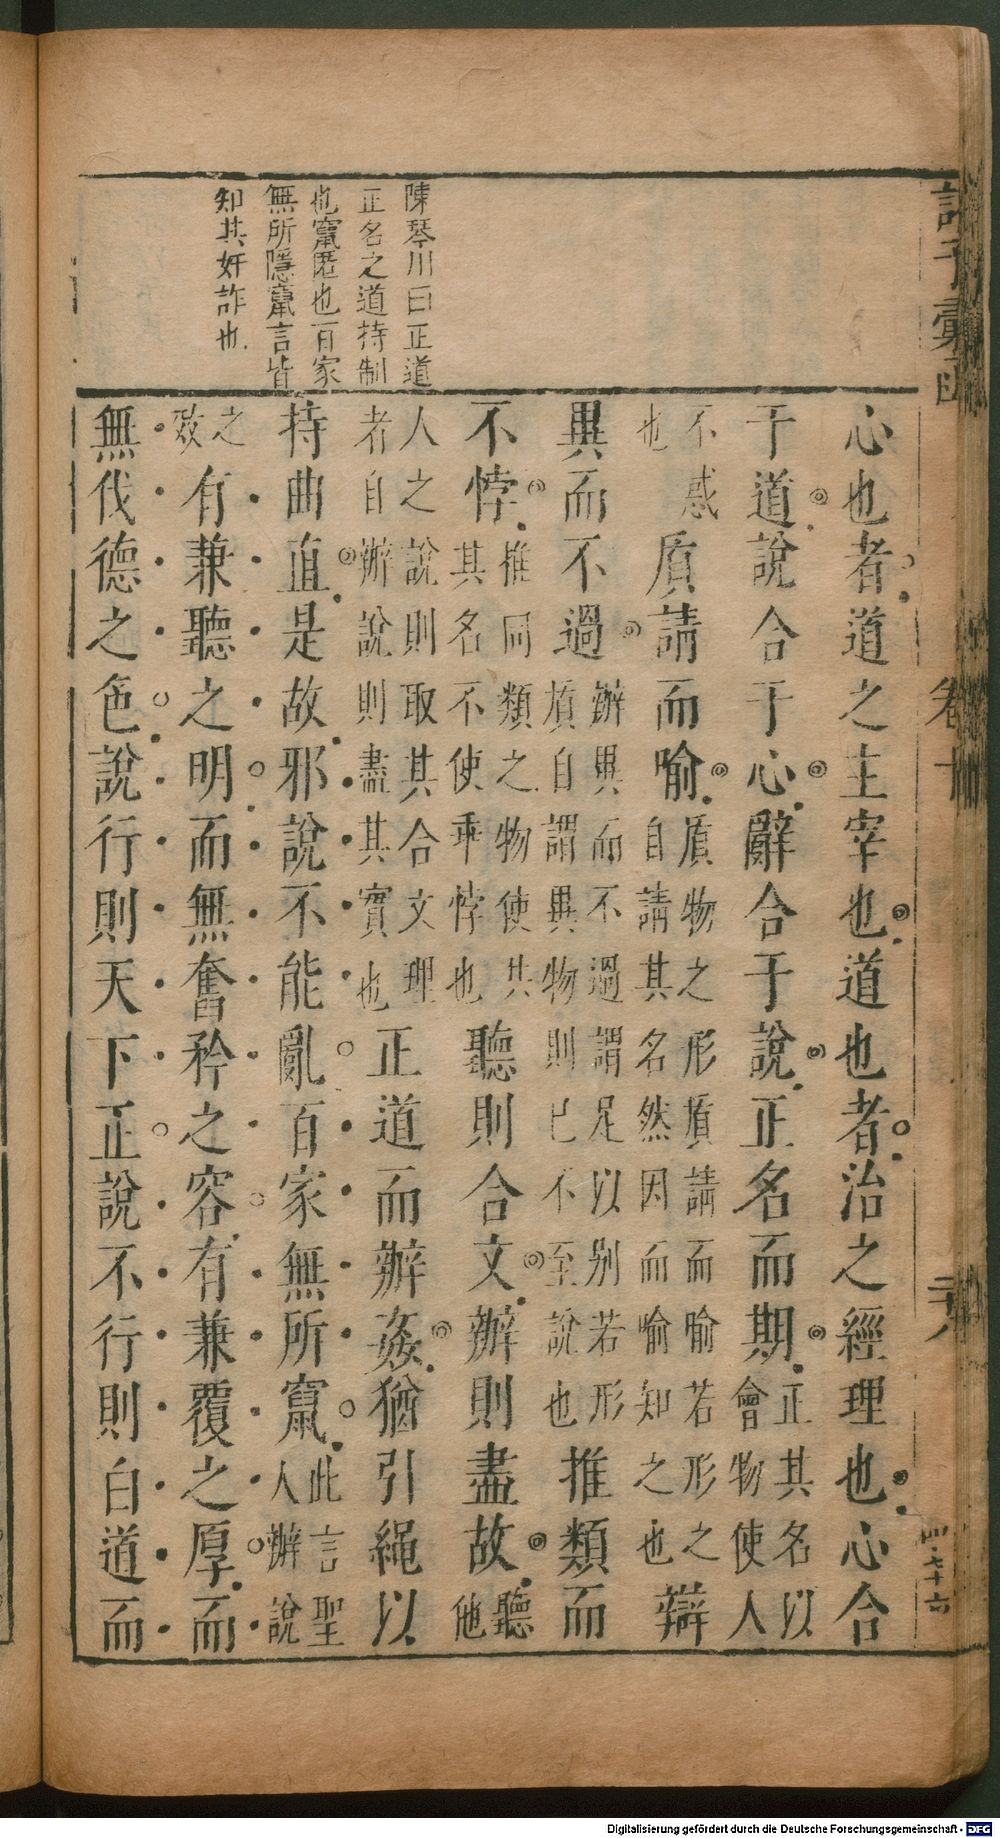 諸子彙函
卷十
二十八
四七十六
陳琴川曰正道
正名之道持制
也竄匿也百家
無所隱竄言皆
知其奸詐也
心也者道之主宰也道也者治之經理也心合
于道說合于心辭合于說正名而期正其名以會物使人
不惑也質請而喻質物之形質請而喻若形之自請其名然因而喻知之也辯
異而不過辨異而不過謂足以别若形質自謂異物則已不至說也推類而
不悖推同類之物使共其名不使乖悖也聽則合文辨則盡故聽他
人之說則取其合文理者自辨說則盡其實也正道而辨姦猶引繩以
持曲直是故邪說不能亂百家無所竄此言聖人辨說
之效有兼聽之明而無奮矜之容有兼覆之厚而
無伐德之色說行則天下正說不行則白道而
Digitalisierung gefördert durch die Deutsche Forschungsgemeinschaft - DFG